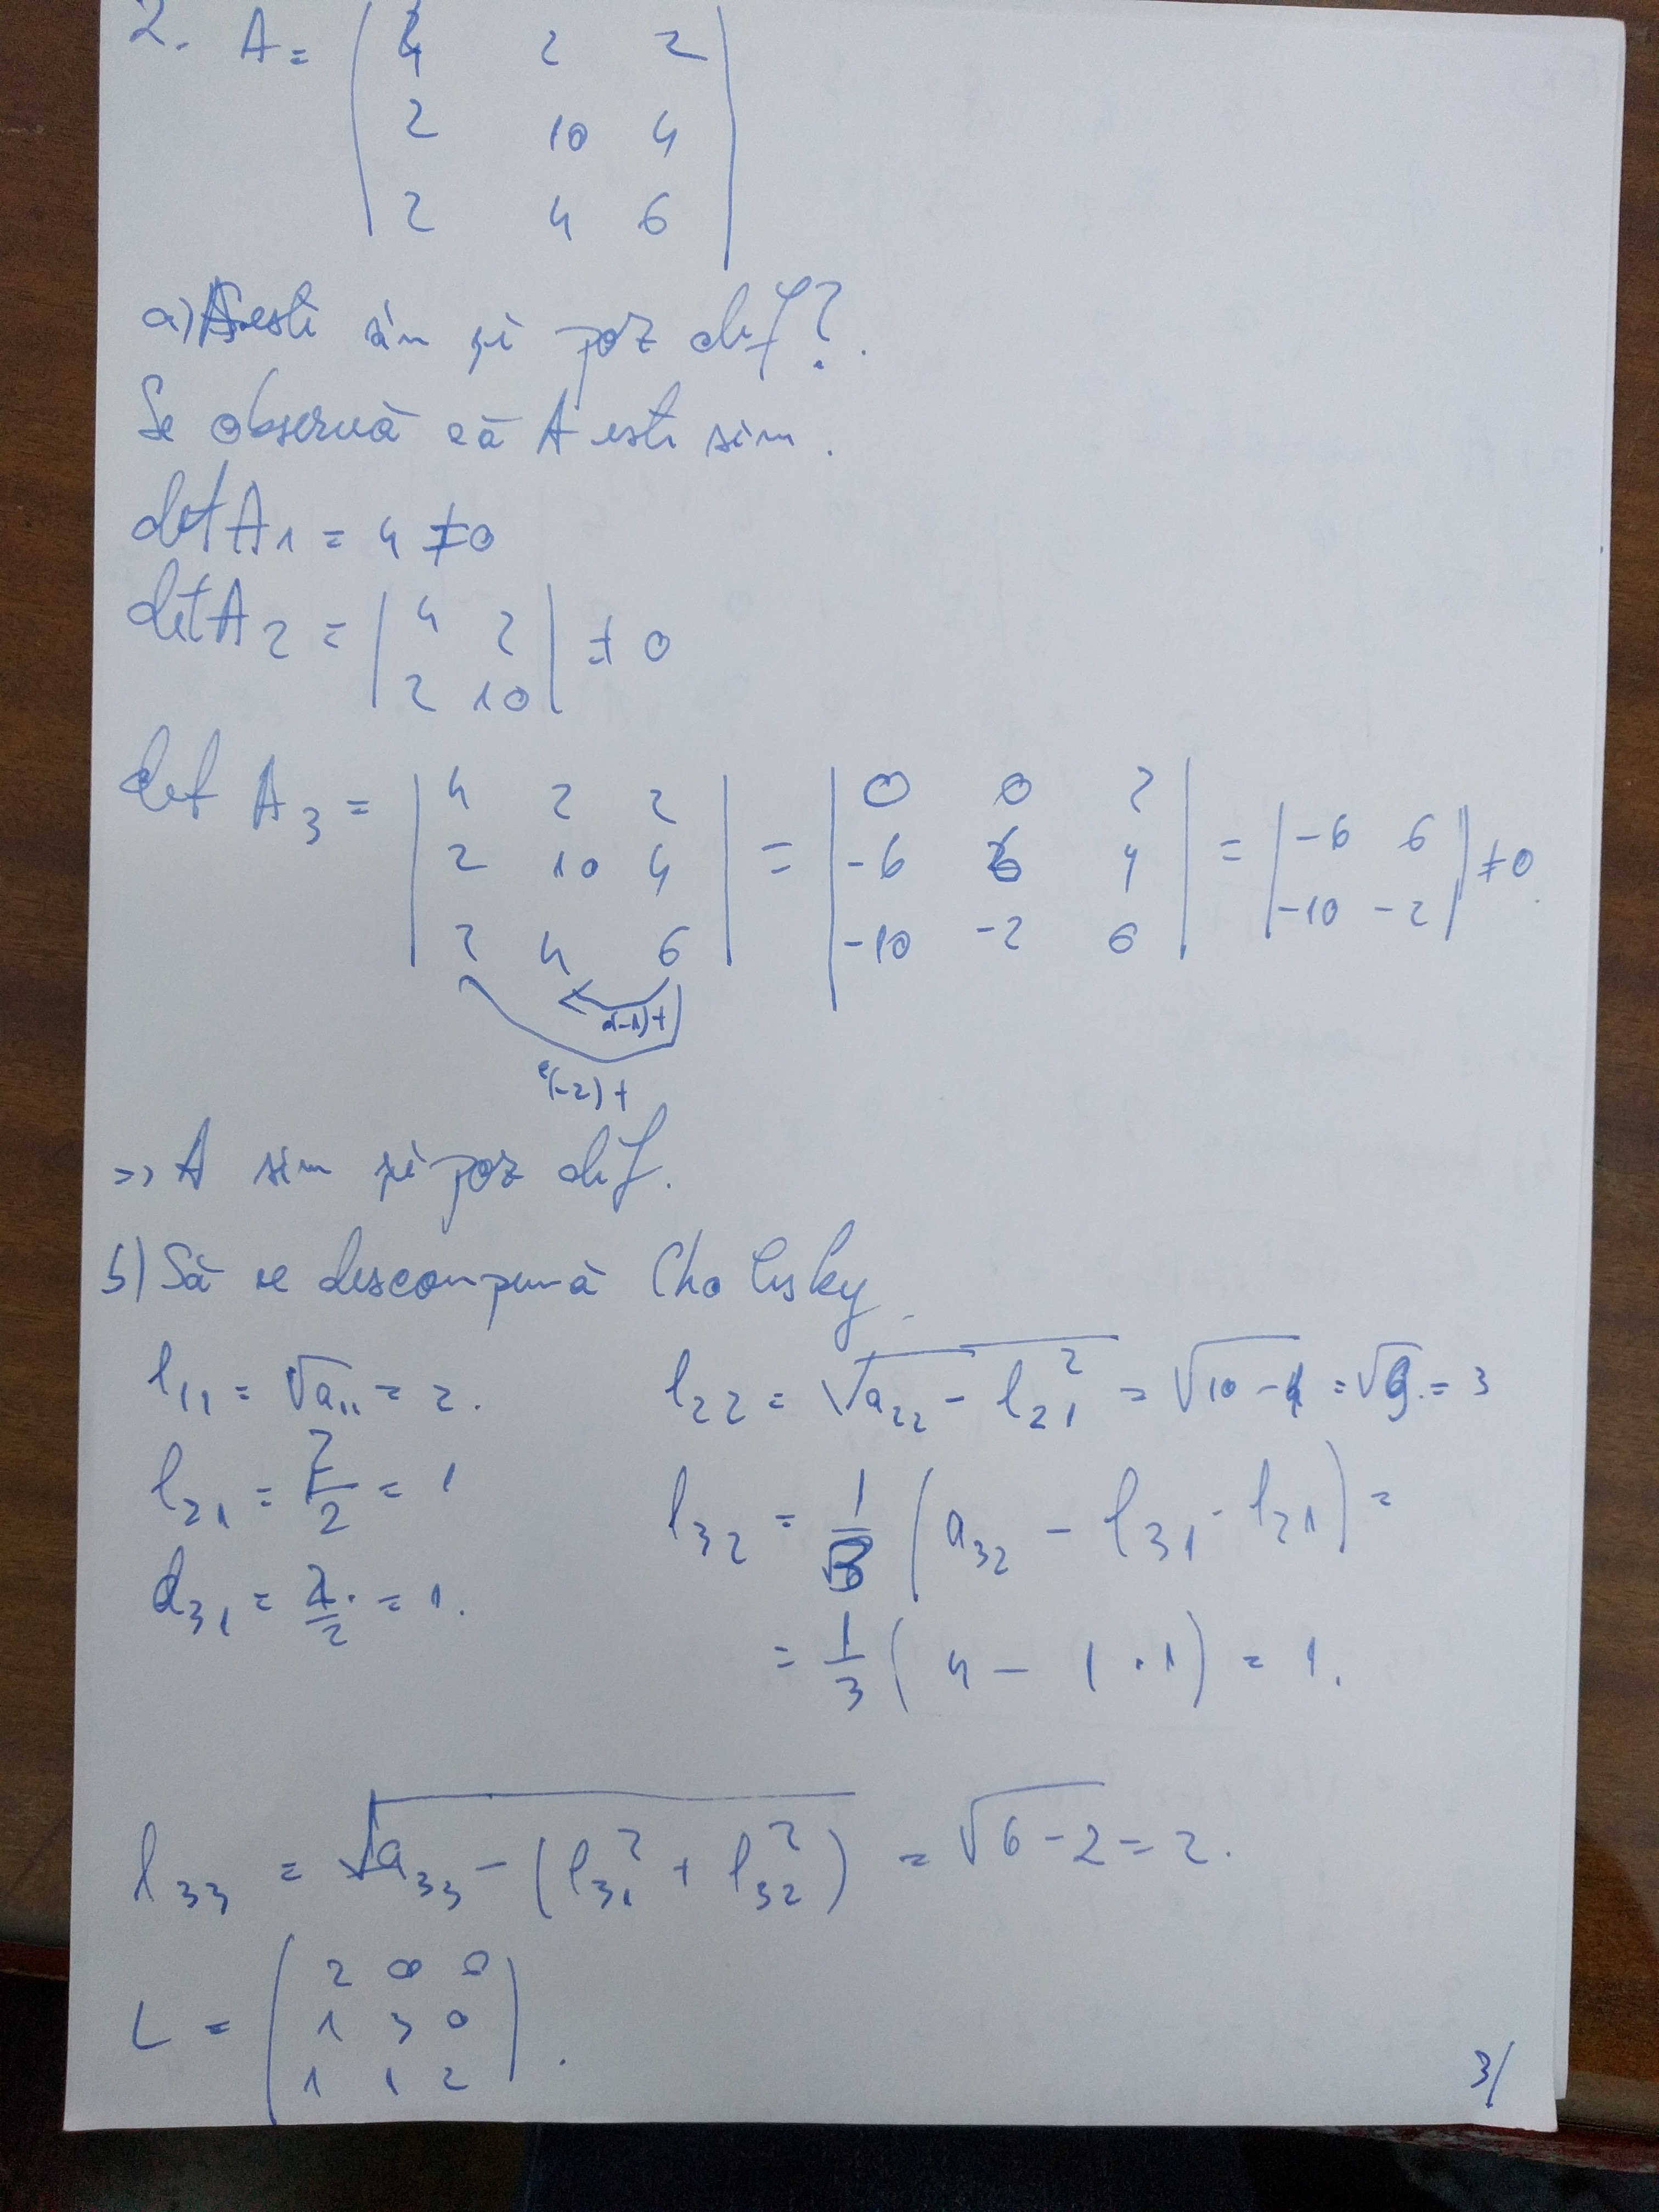 2. A = ( 4 2 2
2 10 4
2 4 6 )
a) A este sim și poz def?.
Se observă că A este sim.
det A1 = 4 ≠ 0
det A2 = | 4 2 | ≠ 0
| 2 10 |
det A3 = | 4 2 2 | = | 0 0 2 | = | -6 6 | ≠ 0.
| 2 10 4 | | -6 6 4 | | -10 -2 |
| 2 4 6 | | -10 -2 6 |
·(-1)+
·(-2)+
=> A sim și poz def.
b) Să se descompună Cholesky.
l11 = √a11 = 2.
l21 = 2/2 = 1
l31 = 2/2 = 1.
l22 = √(a22 - l21²) = √(10-1) = √9 = 3
l32 = 1/3 (a32 - l31 · l21) =
= 1/3 (4 - 1 · 1) = 1.
l33 = √(a33 - (l31² + l32²)) = √(6-2) = 2.
L = ( 2 0 0
1 3 0
1 1 2 ).
3/